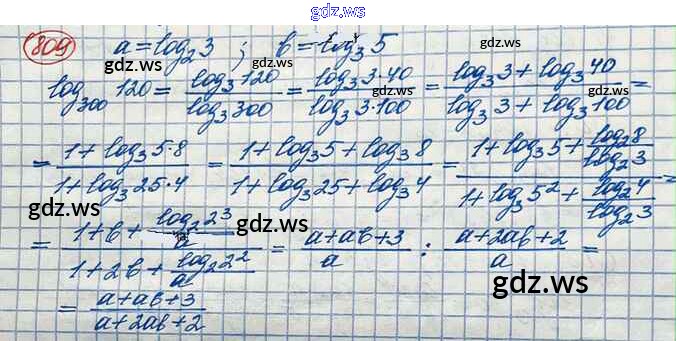 gdz.ws
809 a = log₂3 ; b = log₃5
log₃₀₀120 = log₃120 / log₃300 = log₃3·40 / log₃3·100 = (log₃3 + log₃40) / (log₃3 + log₃100) =
gdz.ws gdz.ws gdz.ws
= (1 + log₃5·8) / (1 + log₃25·4) = (1 + log₃5 + log₃8) / (1 + log₃25 + log₃4) = (1 + log₃5 + log₂8 / log₂3) / (1 + log₃5² + log₂4 / log₂3) =
gdz.ws gdz.ws gdz.ws
= (1 + b + log₂2³ / a) / (1 + 2b + log₂2² / a) = (a + ab + 3) / a : (a + 2ab + 2) / a =
gdz.ws gdz.ws
= (a + ab + 3) / (a + 2ab + 2)
gdz.ws